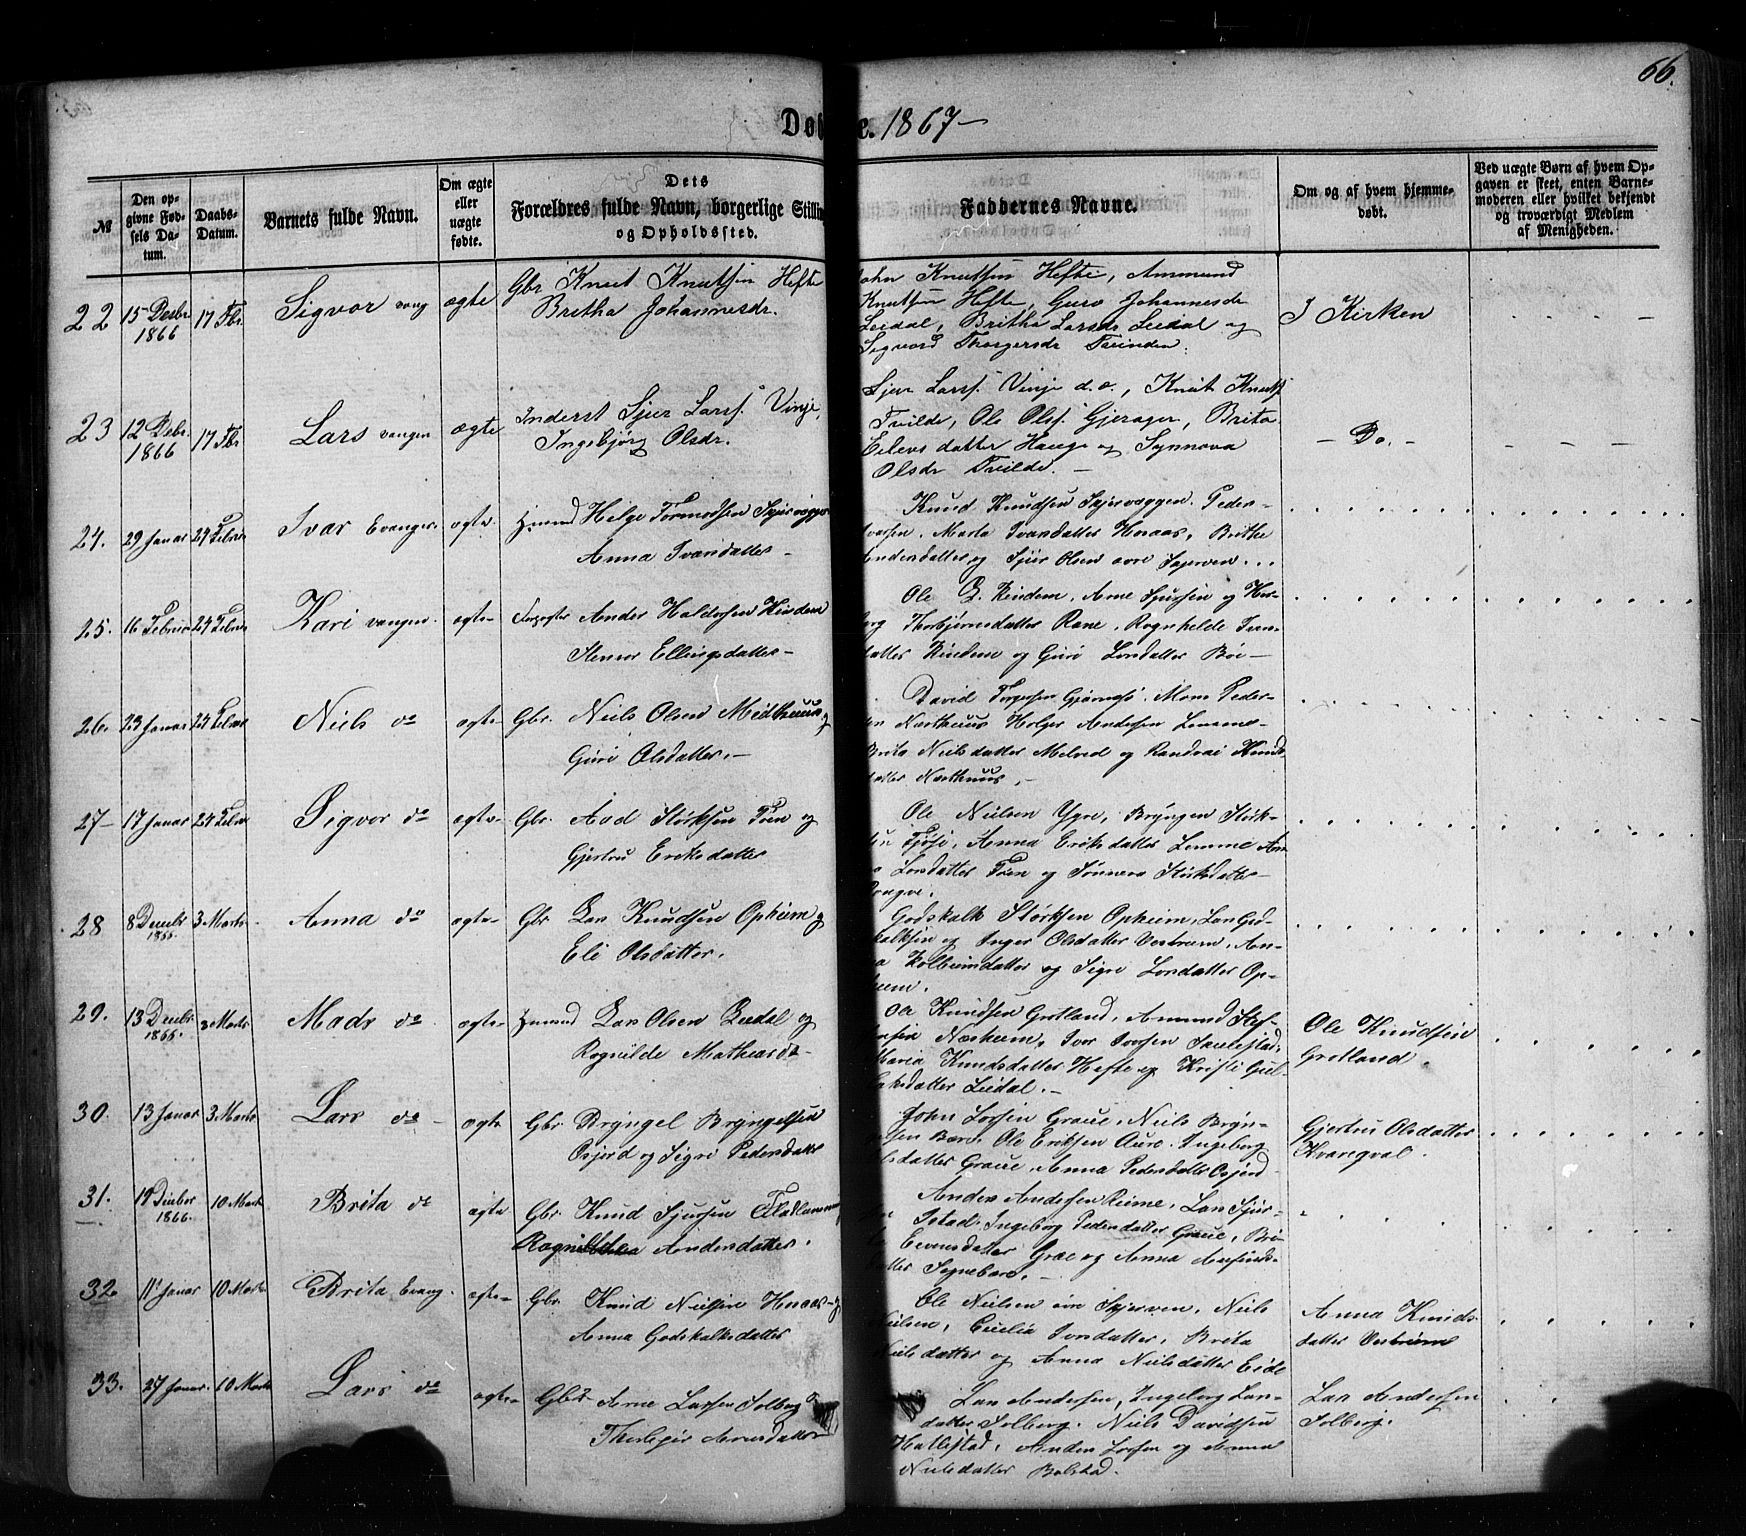 66.
Døbte. 1867
№
Den opgivne Fødsels Datum.
Daabs-Datum.
Barnets fulde Navn.
Om ægte eller uægte fødte.
Dets Forældres fulde Navn, borgerlige Stilling og Opholdssted.
Faddernes Navne.
Om og af hvem hjemmedøbt.
Ved uægte Børn af hvem Opgaven er skeet, enten Barnemoderen eller hvilket bekjendt og troværdigt Medlem af Menigheden.
22 15 Decbr. 1866 17 Fbr. Sigvor vang ægte
Gbr Knut Knutsen Hefte
Britha Johannesdr.
John Knutsen Hefte, Ammund
Knutsen Hefte, Guro Johannesdr
Leidal, Britha Larsdr Leidal og
Sigvord Thorgersdr Tvinden.
I Kirken
23 12 Debr. 1866 17 Fbr Lars vangen ægte
Inderst Sjur Larss. Vinje,
Ingebjørg Olsdr.
Sjur Larss. Vinje d.o., Knut Knuts
Tvilde, Ole Ols. Gjerager, Brita
Eilevsdatter Hauge og Synnova
Olsdr Tvilde.
Do.
24. 29 Januar 24 Februar Ivar Evanger ægte
Hmand Helge Tormodsen
Anna Ivarsdatter
Knud Knudsen Skjervaggen. Peder
Ivarsen, Marta Ivarsdatter Hnaas, Brithe
Andersdatter og Sjur Olsen øvre Skjerven
25. 16 Februar 24 Februar Kari vangen ægte
Anders Haldorsen Kindem
Steinvor Ellingsdatter
Ole E. Kindem, Arne Sjursen og
Thorbjørnsdatter Rene, Rognhilde
datter Kindem og Guri Larsdatter Bøe
26. 23 Januar 24 Februar Niels do ægte
Gbr. Niels Olsen Midthuus og
Guri Olsdatter.
David Torgersen Gjerme, Mons Peder-
sen Nærthuus Holger Andersen Lemme
Brita Nielsdatter Melved og Randvei Knuds-
datter Nærthuus.
27 17 Januar 24 Februar Sigvor do ægte
Gbr. Aad Størksen Tren og
Gjertru Eriksdatter
Ole Nielsen Ygre, Brynjgen Størk-
sen Fjøse, Anna Eriksdatter Lemme An-
na Larsdatter Tren og Sønneva Størksdatter
28 8 Decebr 1866. 3 Marts Anna do ægte
Gbr Lars Knudsen Opheim og
Eli Olsdatter.
Godskalk Størksen Opheim, Lars God-
skalksen og Inger Olsdatter Vestrem, An-
na Kolbeinsdatter og Sigri Larsdatter Op-
heim.
29. 13 Decebr 1866. 3 Marts Mads do ægte
Hmand Lars Olsen Leidal og
Rognilde Mathiasdr
Ole Knudsen Grotland, Amund Stef-
fensen Næsheim, Ivar Ivarsen Saelejtad,
Maria Knudsdatter Hefte og Kristi Gul-
laksdatter Leidal.
Ole Knudsen
Grotland.
30. 13 Januar 3 Marts Lars do ægte
Gbr Bryngel Bryngelsen
Osjord og Sigri Pedersdatter
John Larsen Graue, Niels Bryn-
gelsen Bare, Ole Eriksen Aure. Ingeborg
Nilsdatter Graue, Anna Pedersdatter Osjord
Gjertru Olsdatter
Kvarqval.
31. 19 December 1866. 10 Marts Brita do ægte
Gbr. Knud Sjursen Fladlammen
Andersdatter.
Anders Andersen Reime, Lars Sjur-
sen Istad, Ingeborg Pedersdatter Graue, Bri-
ta Eivinsdatter Grae og Anna Amunds-
datter Sognebare.
32. 11 Januar 10 Marts Brita Evang. ægte
Gbr. Knud Nielsen Hnaas og
Anna Godskalksdatter
Ole Nielsen øvre Skjerven, Niels
Nielsen, Cecilia Ivarsdatter, Brita
Nielsdatter og Anna Nielsdatter Eide
Anna Knuds-
datter Vestrem
33. 27 Januar. 10 Marts Lars do ægte
Gbr Arne Larsen Solberg
Thorleger Arnesdatter
Lars Andersen, Ingeborg Lars-
datter Solberg. Niels Davidsen
Hallestad, Anders Larsen og Anna
Nielsdatter Bolstad.
Lars Andersen
Solberg.